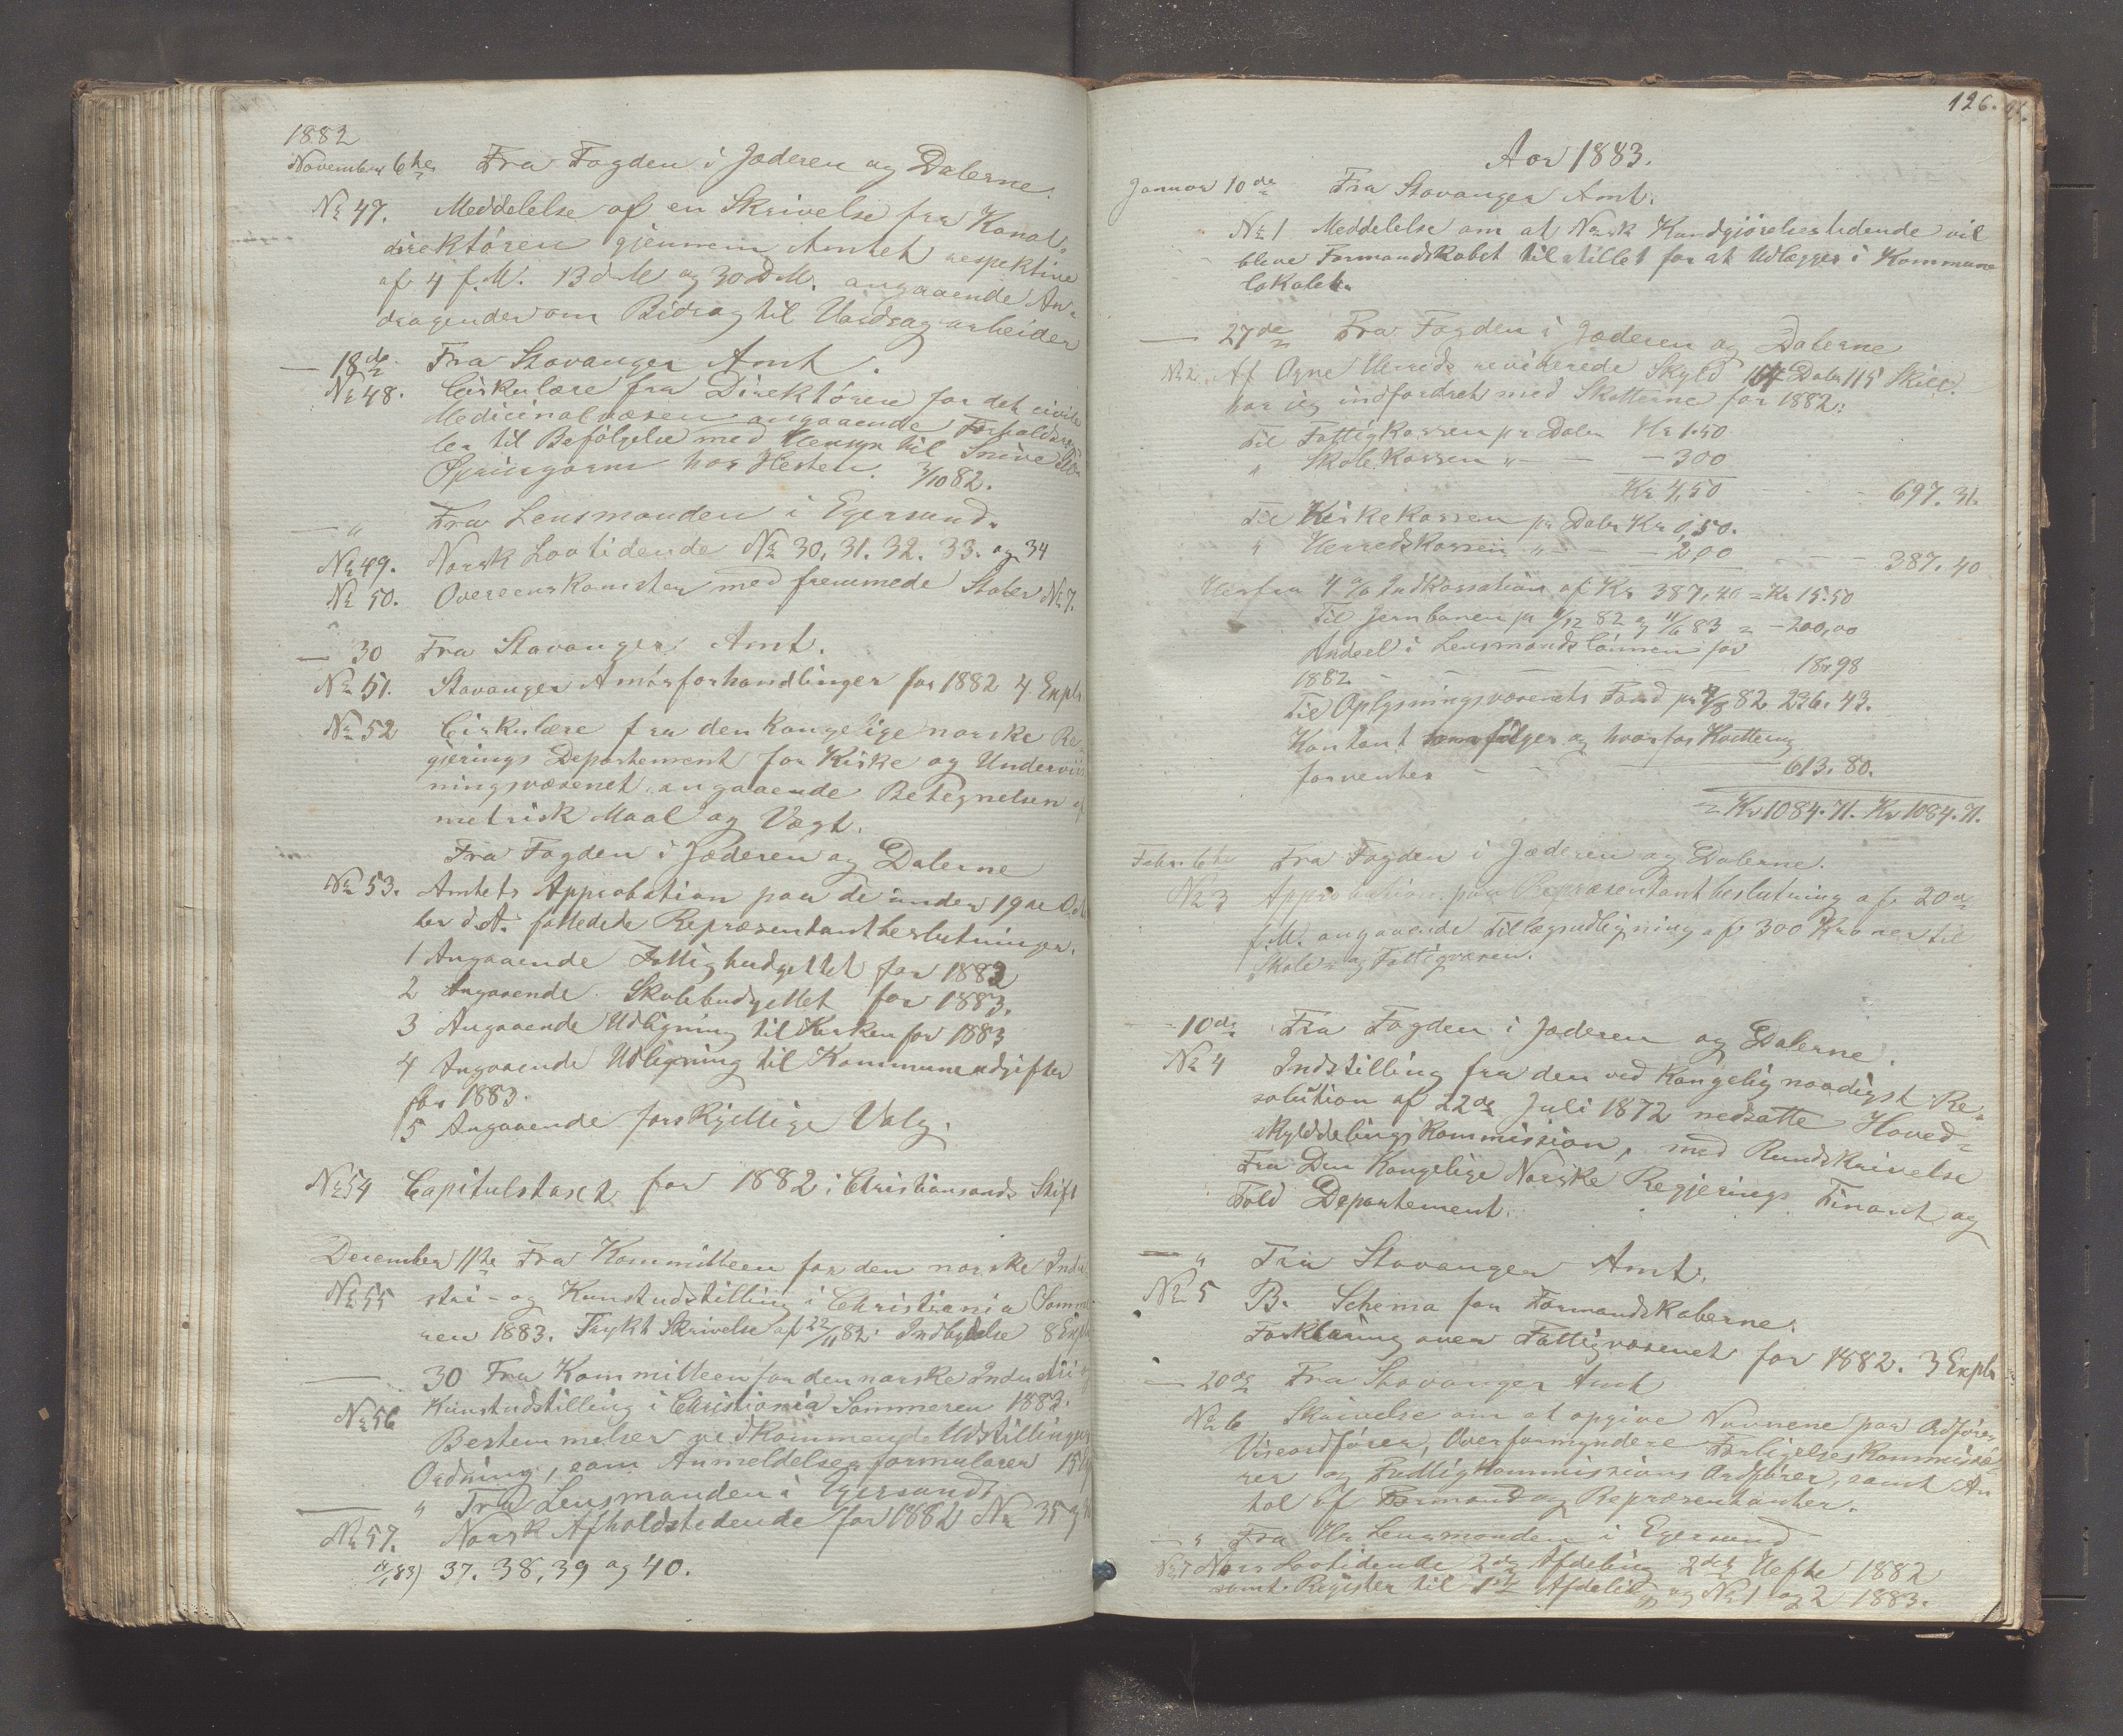 1882
November 6te Fra Fogden i Jæderen og Dalerne.
No 47. Meddelelse af en Skrivelse fra Kanal-
direktören gjennem Amtet respektive
af 4 f.M. 13 d.M og 30 d.M. angaaende An-
dragender om Bidrag til Vasdragarbeider
— 18de Fra Stavanger Amt.
No 48. Cirkulære fra Direktören for det civile
Medicinalvæsen angaaende Forholdsreg
ler til Befölgelse med Hensyn til Snive
Springorm hos Hesten. 3/10 82.
— " Fra Lensmanden i Egersund.
No 49. Norsk Lovtidende No 30, 31. 32. 33. og 34
No 50. Overenskomster med fremmede Stater No 7.
— 30 Fra Stavanger Amt.
No 51. Stavanger Amtsforhandlinger for 1882 4 Expl
No 52 Cirkulære fra den kongelige norske Re
gjerings Departement for Kirke og Underviis
ningsvæsenet angaaende Betegnelsen af
metrisk Maal og Vægt.
Fra Fogden i Jæderen og Dalerne
No 53. Amtets Approbation paa de under 19de Octo
ber d.A. fattede Repræsentantbeslutninger.
1 Angaaende Fattigbudgettet for 1883
2 Angaaende Skolebudgettet for 1883.
3 Angaaende Udligning til Kirken for 1883
4 Angaaende Udligning til Kommuneudgifter
for 1883.
5 Angaaende forskjellige Valg.
No 54 Capitulstaxt for 1882 i Christiansands Stift
December 11te Fra Kommitteen for den norske Indu
No 55 stri- og Kunstudstilling i Christiania Somme
ren 1883. Trykt Skrivelse af 22/11 82. Indbydelse 8 Expl
— 30 Fra Kommitteen for den norske Industri og
No 56 Kunstudstilling i Christiania Sommeren 1883.
Bestemmelser vedkommende Udstillingens
Ordning, som Anmeldelsesformularer 15
— " Fra Lensmanden i Egersund
No 57. Norsk Afholdstidende for 1882 No 35 og 36
37. 38, 39 og 40.
126.
Aar 1883.
Januar 10de Fra Stavanger Amt.
No 1 Meddelelse om at Norsk Kundgjörelsestidende vil
blive Formandskabet tilstillet for at Udlægges i Kommune
lokalet.
— 27de Fra Fogden i Jæderen og Dalerne
No 2. Af Ogne Herreds reviderede Skyld 154 Daler 115 Skill.
har jeg indfordret med Skatterne for 1882:
Til Fattigkassen pr Daler Kr 1.50
" Skolekassen " — — 300
Kr 4,50 - - 697.31.
Til Kirkekassen pr Daler Kr 0,50.
" Herredskassen " — — 2,00 — — — 387.40
Herfra 4 % Indkassation af Kr 387,40 = Kr 15.50
Til Jernbanen pr 11/12 82 og 11/6 83 = - 200,00
Andeel i Lensmandslönnen for
1882 - - - 18,98
Til Oplysningsvæsenets Fond pr 82 236.43.
Kontant som fölger og hvorfor Kvittering
forventes — — — 613.80.
= Kr 1084.71. Kr 1084.71.
Febr. 6te Fra Fogden i Jæderen og Dalerne.
No 3 Approbation paa Repræsentantbeslutning af 20de
f.M. angaaende Tillægsudligning af 300 Kroner til
Skole- og Fattigvæsen.
— 10de Fra Fogden i Jæderen og Dalerne.
No 4 Indstilling fra den ved Kongelig naadigst Re-
solution af 22de Juli 1872 nedsatte Hoved-
skylddelingskommission, med Rundskrivelse
Fra Den Kongelige Norske Regjerings Finants og
Told Departement.
— " Fra Stavanger Amt.
No 5 B. Schema for Formandskaberne.
Forklaring over Fattigvæsenet for 1882. 3 Expl
— 20de Fra Stavanger Amt
No 6 Skrivelse om at opgive Navnene paa Ordförer
Viseordförer, Overformyndere Forligelseskommissæ-
rer og Fattigkommissions Ordförer, samt An
tal af Formænd og Repræsentanter.
— " Fra Hr Lensmanden i Egersund
No 7 Norsk Lovtidende 2den Afdeling 2det Hefte 1882
samt Register til 1ste Afdeling og No 1 og 2 1883.